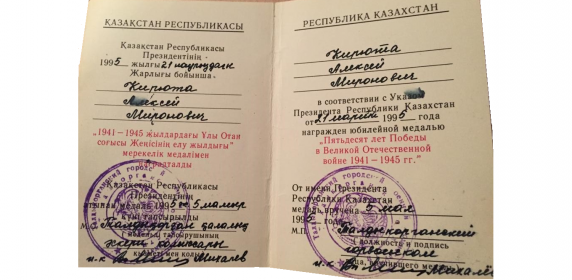 ҚАЗАҚСТАН РЕСПУБЛИКАСЫ
Қазақстан Республикасы
Президентінің
1995 жылғы 21 наурыздағы
Жарлығы бойынша
Кирюта
Алексей
Миронович
"1941—1945 жылдардағы Ұлы Отан
соғысы Жеңісінің елу жылдығы"
мерекелік медалімен
Қазақстан Республикасы
Президентінің
атынан медаль 1995 ж 5 мамыр
күні тапсырылды
М.О.
РЕСПУБЛИКА КАЗАХСТАН
Кирюта
Алексей
Миронович
в соответствии с Указом
Президента Республики Казахстан
от 21 марта 1995 года
награжден юбилейной медалью
"Пятьдесят лет Победы
в Великой Отечественной
войне 1941—1945 гг."
От имени Президента
Республики Казахстан
медаль вручена 5 мая
1995
М.П. Талдыкорганский
горвоенком
должность и подпись
лица, вручившего медаль